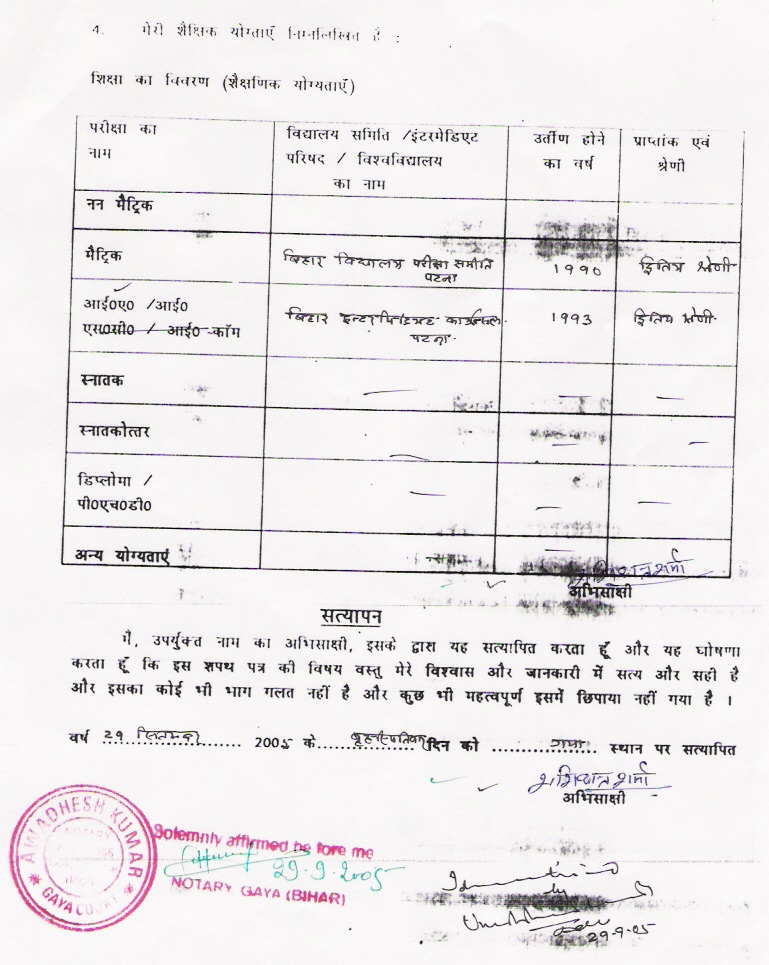 4. मेरी शैक्षिक योग्ताएँ निम्नलिखित है :
शिक्षा का विवरण (शैक्षणिक योग्यताएँ)
परीक्षा का नाम
विद्यालय समिति /इंटरमेडिएट
परिषद / विश्वविद्यालय
का नाम
उर्तीण होने
का वर्ष
प्राप्तांक एवं
श्रेणी
नन मैट्रिक
मैट्रिक
बिहार विद्यालय परीक्षा समीति
पटना
1990
द्वितिय श्रेणी
आई०ए० /आई०
एस०सी० / आई० कॉम
बिहार इन्टरमिडिएट काउन्सिल
पटना
1993
द्वितिय श्रेणी
स्नातक
स्नातकोत्तर
डिप्लोमा /
पी०एच०डी०
अन्य योग्यताएँ
शशिकान्त शर्मा
अभिसाक्षी
सत्यापन
मैं, उपर्युक्त नाम का अभिसाक्षी, इसके द्वारा यह सत्यापित करता हूँ और यह घोषणा
करता हूँ कि इस शपथ पत्र की विषय वस्तु मेरे विश्वास और जानकारी में सत्य और सही है
और इसका कोई भी भाग गलत नहीं है और कुछ भी महत्वपूर्ण इसमें छिपाया नहीं गया है ।
वर्ष 29 सितम्बर 2005 के बृहस्पतिवार दिन को गया स्थान पर सत्यापित
शशिकान्त शर्मा
अभिसाक्षी
AWADHESH KUMAR
NOTARY
GAYA COURT
Solemnly affirmed be fore me
29.9.2005
NOTARY GAYA (BIHAR)
by
29-9-05